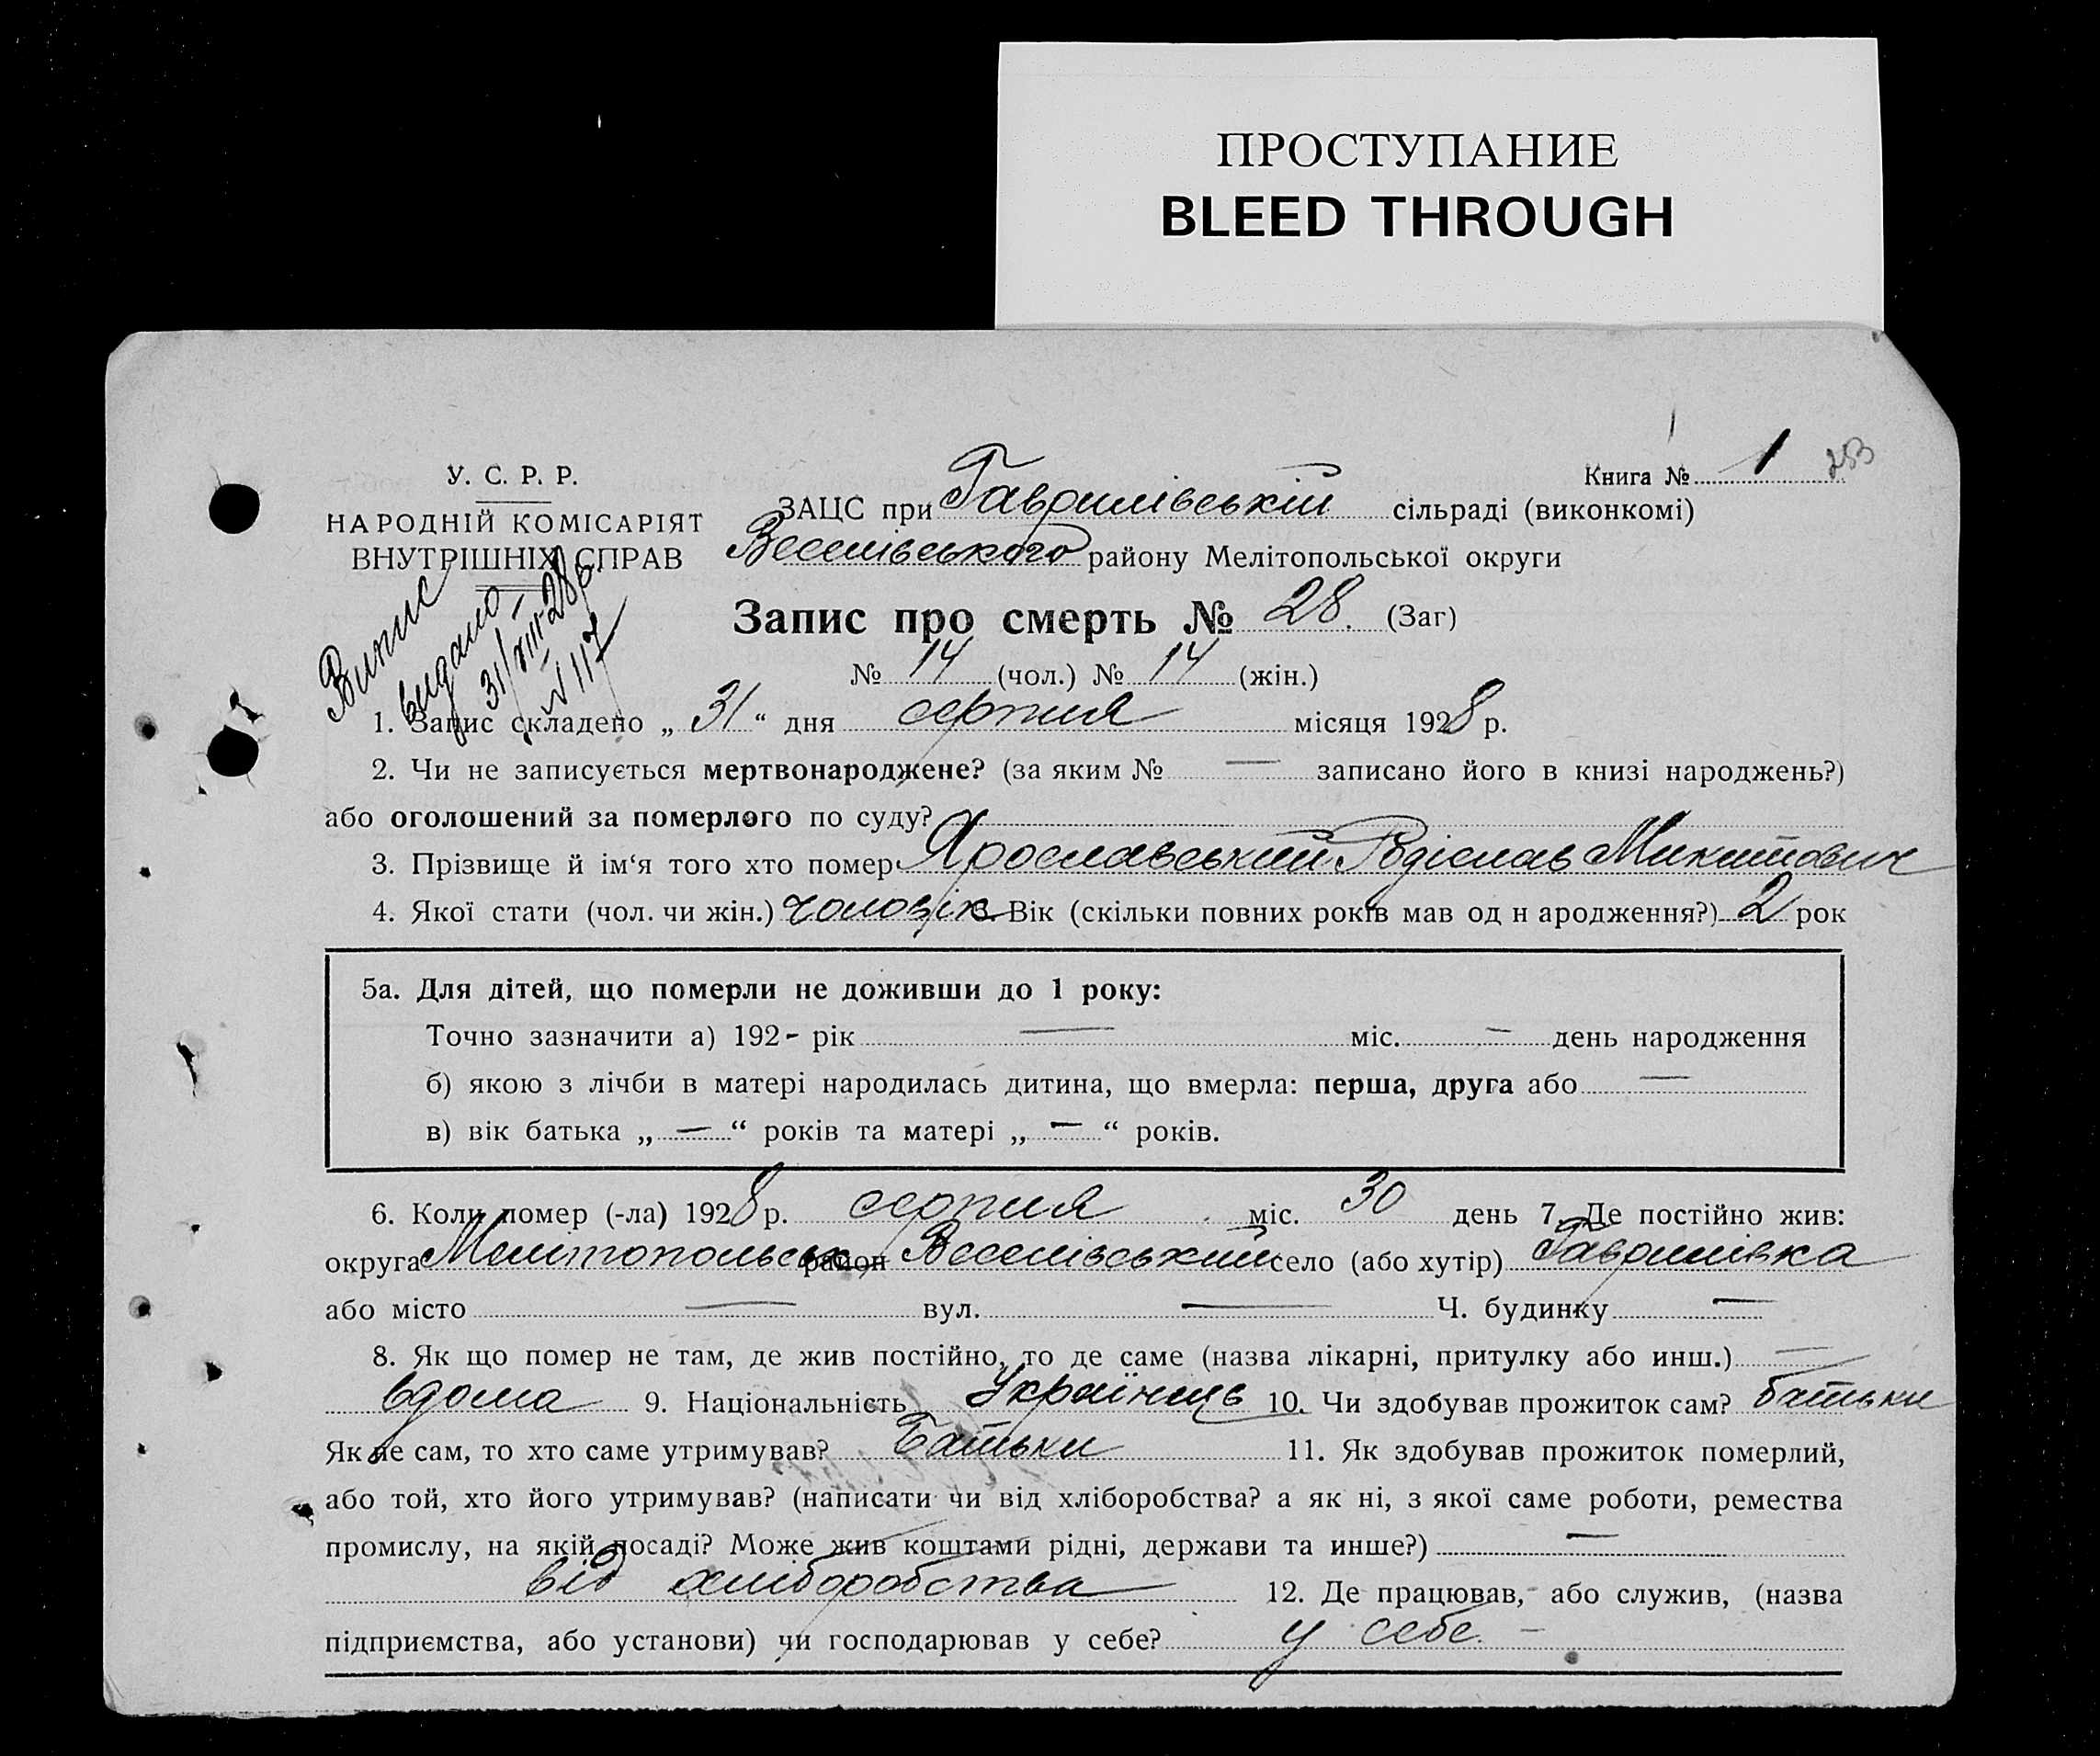 ПРОСТУПАНИЕ
BLEED THROUGH
Книга № 1 253
У. С. Р. Р.
НАРОДНІЙ КОМІСАРІЯТ
ВНУТРІШНІХ СПРАВ
ЗАЦС при Гаврилівській сільраді (виконкомі)
Веселівського району Мелітопольської округи
Випис
видано
31/VIII-28р.
№ 117
Запис про смерть № 28. (Заг)
№ 14 (чол.) № 14 (жін.)
1. Запис складено „ 31 “ дня серпня місяця 1928 р.
2. Чи не записується мертвонароджене? (за яким № — записано його в книзі народжень?)
або оголошений за померлого по суду?
3. Прізвище й ім‘я того хто помер Ярославський Родіслав Микитович
4. Якої стати (чол. чи жін.) чоловік 5. Вік (скільки повних років мав од н ародження?) 2 рок
5а. Для дітей, що померли не доживши до 1 року:
Точно зазначити а) 192- рік — міс. — день народження
б) якою з лічби в матері народилась дитина, що вмерла: перша, друга або —
в) вік батька „ — “ років та матері „ — “ років.
6. Коли помер (-ла) 1928 р. серпня міс. 30 день 7. Де постійно жив:
округа Мелітопольськ район Веселівський село (або хутір) Гаврилівка
або місто — вул. — Ч. будинку —
8. Як що помер не там, де жив постійно, то де саме (назва лікарні, притулку або инш.) —
вдома 9. Національність Українець 10. Чи здобував прожиток сам? батьки
Як не сам, то хто саме утримував? Батьки 11. Як здобував прожиток померлий,
або той, хто його утримував? (написати чи від хліборобства? а як ні, з якої саме роботи, ремества
промислу, на якій посаді? Може жив коштами рідні, держави та инше?) —
від хліборобства 12. Де працював, або служив, (назва
підприємства, або установи) чи господарював у себе? у себе. —